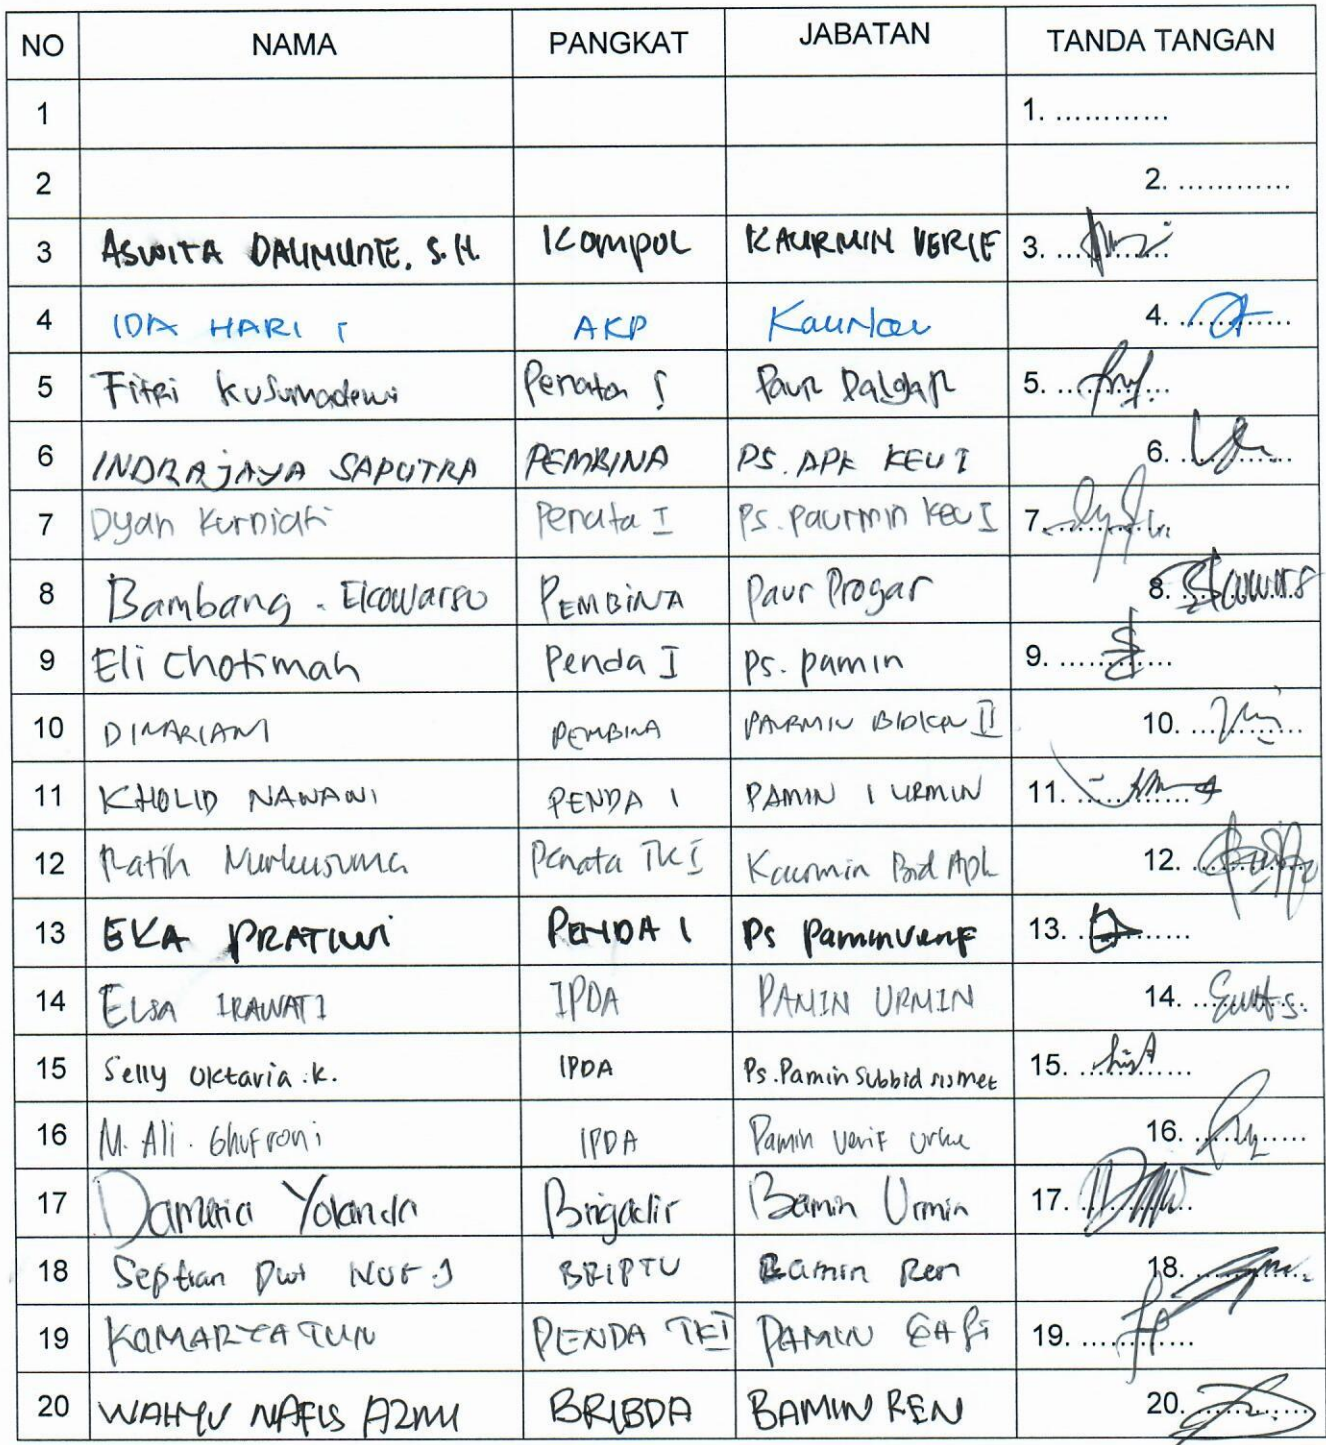 NO NAMA PANGKAT JABATAN TANDA TANGAN
1 1. ............
2 2. ............
3 ASWITA DAUMUNTE, S.H. Kompol KAURMIN VERIF 3. ............
4 IDA HARI AKP 4. ............
5 Fitri Kusumadewi Penata I Paur Dalgar 5. ............
6 INDRAJAYA SAPUTRA PEMBINA PS. APK KEU I 6. ............
7 Dyan Kurniati Penata I Ps. paurmin keu I 7. ............
8 Bambang . Ekowarso PEMBINA Paur Progar 8. ............
9 Eli Chotimah Penda I Ps. pamin 9. ............
10 DIMARIANI PEMBINA PAURMIN BIDKEU II 10. ............
11 KHOLID NAWAWI PENDA I PAMIN I URMIN 11. ............
12 Ratih Nurkusuma Penata TK I Kaurmin Bid Apk 12. ............
13 EKA PRATIWI PENDA I Ps Paminverif 13. ............
14 ELSA IRAWATI IPDA PAMIN URMIN 14. ............
15 Selly Oktavia .K. IPDA Ps. Pamin Subbid 15. ............
16 M. Ali . Ghufroni IPDA Pamin Verif 16. ............
17 Damaria Yolanda Brigadir Bamin Urmin 17. ............
18 Septian Dwi Nur . BRIPTU Bamin Ren 18. ............
19 KOMARIATUN PENDA TK I PAMIN 19. ............
20 WAHYU NAFIS AZMI BRIBDA BAMIN REN 20. ............